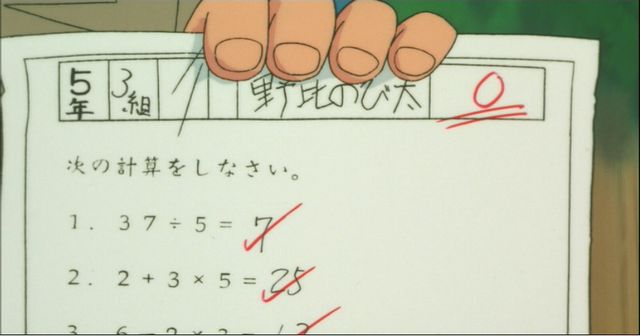 5年 3組 野比のび太 0
次の計算をしなさい。
1. 37÷5= 7
2. 2+3×5= 25